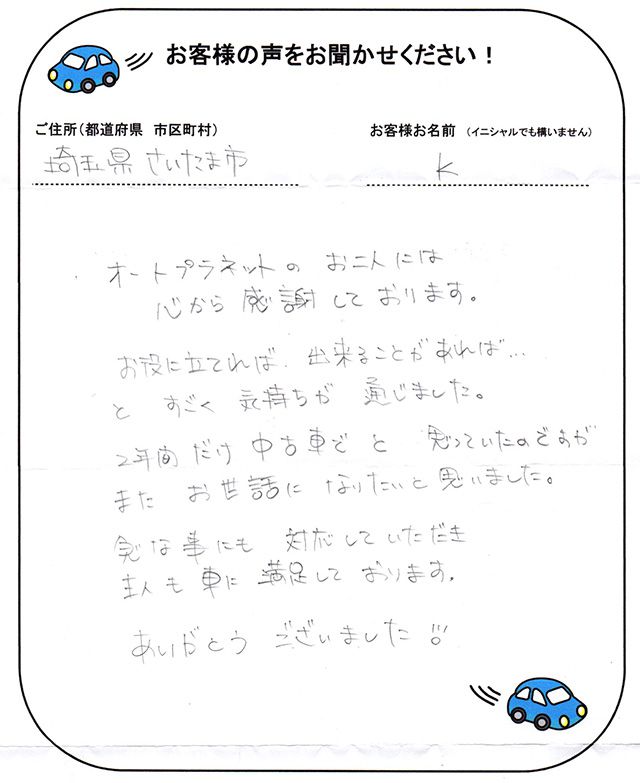 お客様の声をお聞かせください！
ご住所（都道府県　市区町村）
お客様お名前（イニシャルでも構いません）
埼玉県 さいたま市
K
オートプラネットの お二人には
心から 感謝して おります。
お役に立てれば、出来ることがあれば…
と すごく 気持ちが 通じました。
2年間だけ 中古車で と 思っていたのですが
また お世話に なりたいと思いました。
急な事にも 対応していただき
主人も 車に 満足して おります。
ありがとう ございました!!